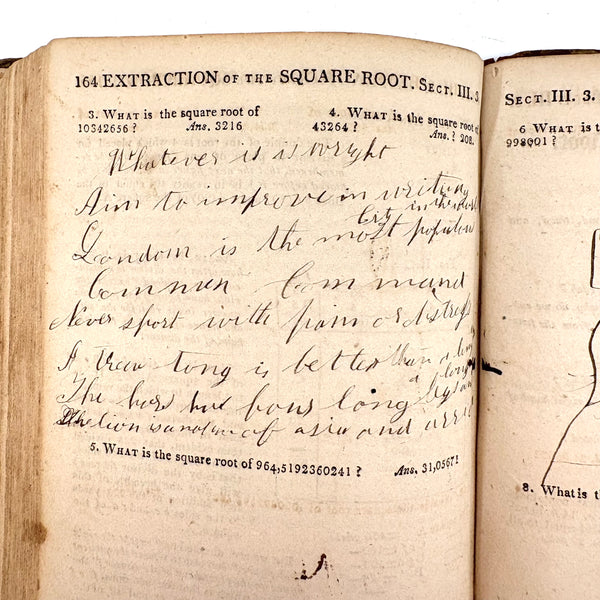 164 EXTRACTION OF THE SQUARE ROOT. SECT. III. 3
3. WHAT is the square root of
10342656 ? Ans. 3216
4. WHAT is the square root of
43264 ? Ans. ? 208.
Whatever is is wright
Aim to improve in writing
City in the world
Londom is the most populous
Common Command
Never sport with pain or distress
A trew tong is better than a
The hors has long legs and
The lion is a native of asia and
5. WHAT is the square root of 964,5192360241 ? Ans. 31,0567?
SECT. III. 3.
6 WHAT is
998001 ?
8. What is